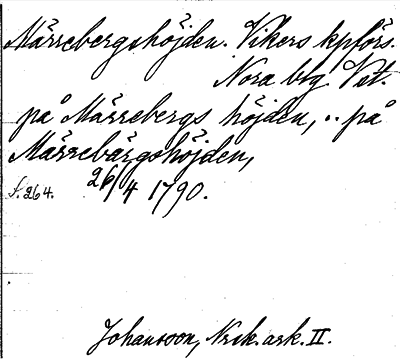 Märrebergshöjden. Vikers kpförs.
Nora btg Vet.
på Märrebergs höjden, .. på
Märrebärgshöjden,
S. 264. 26/4 1790.
Johansson, Nrik. ark. II.